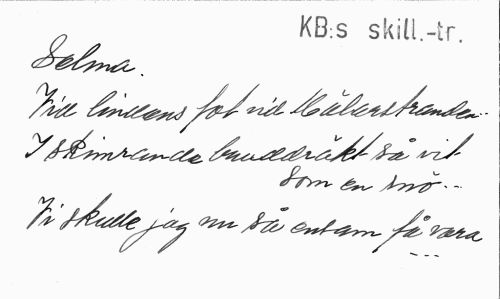 KB:s skill.-tr.
Selma.
Vid lindens fot vid Mälarstranden..
I skimrande bruddräkt så vit
som en snö...
Vi skulle jag nu så ensam få vara
---